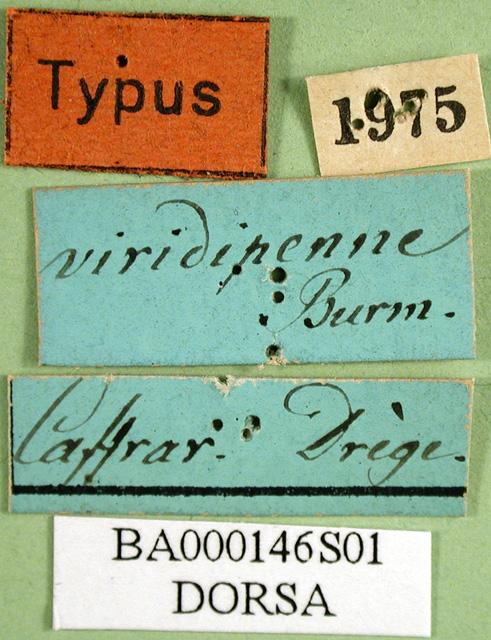 Typus
1975
viridipenne
Burm.
Caffrar. Drège.
BA000146S01
DORSA